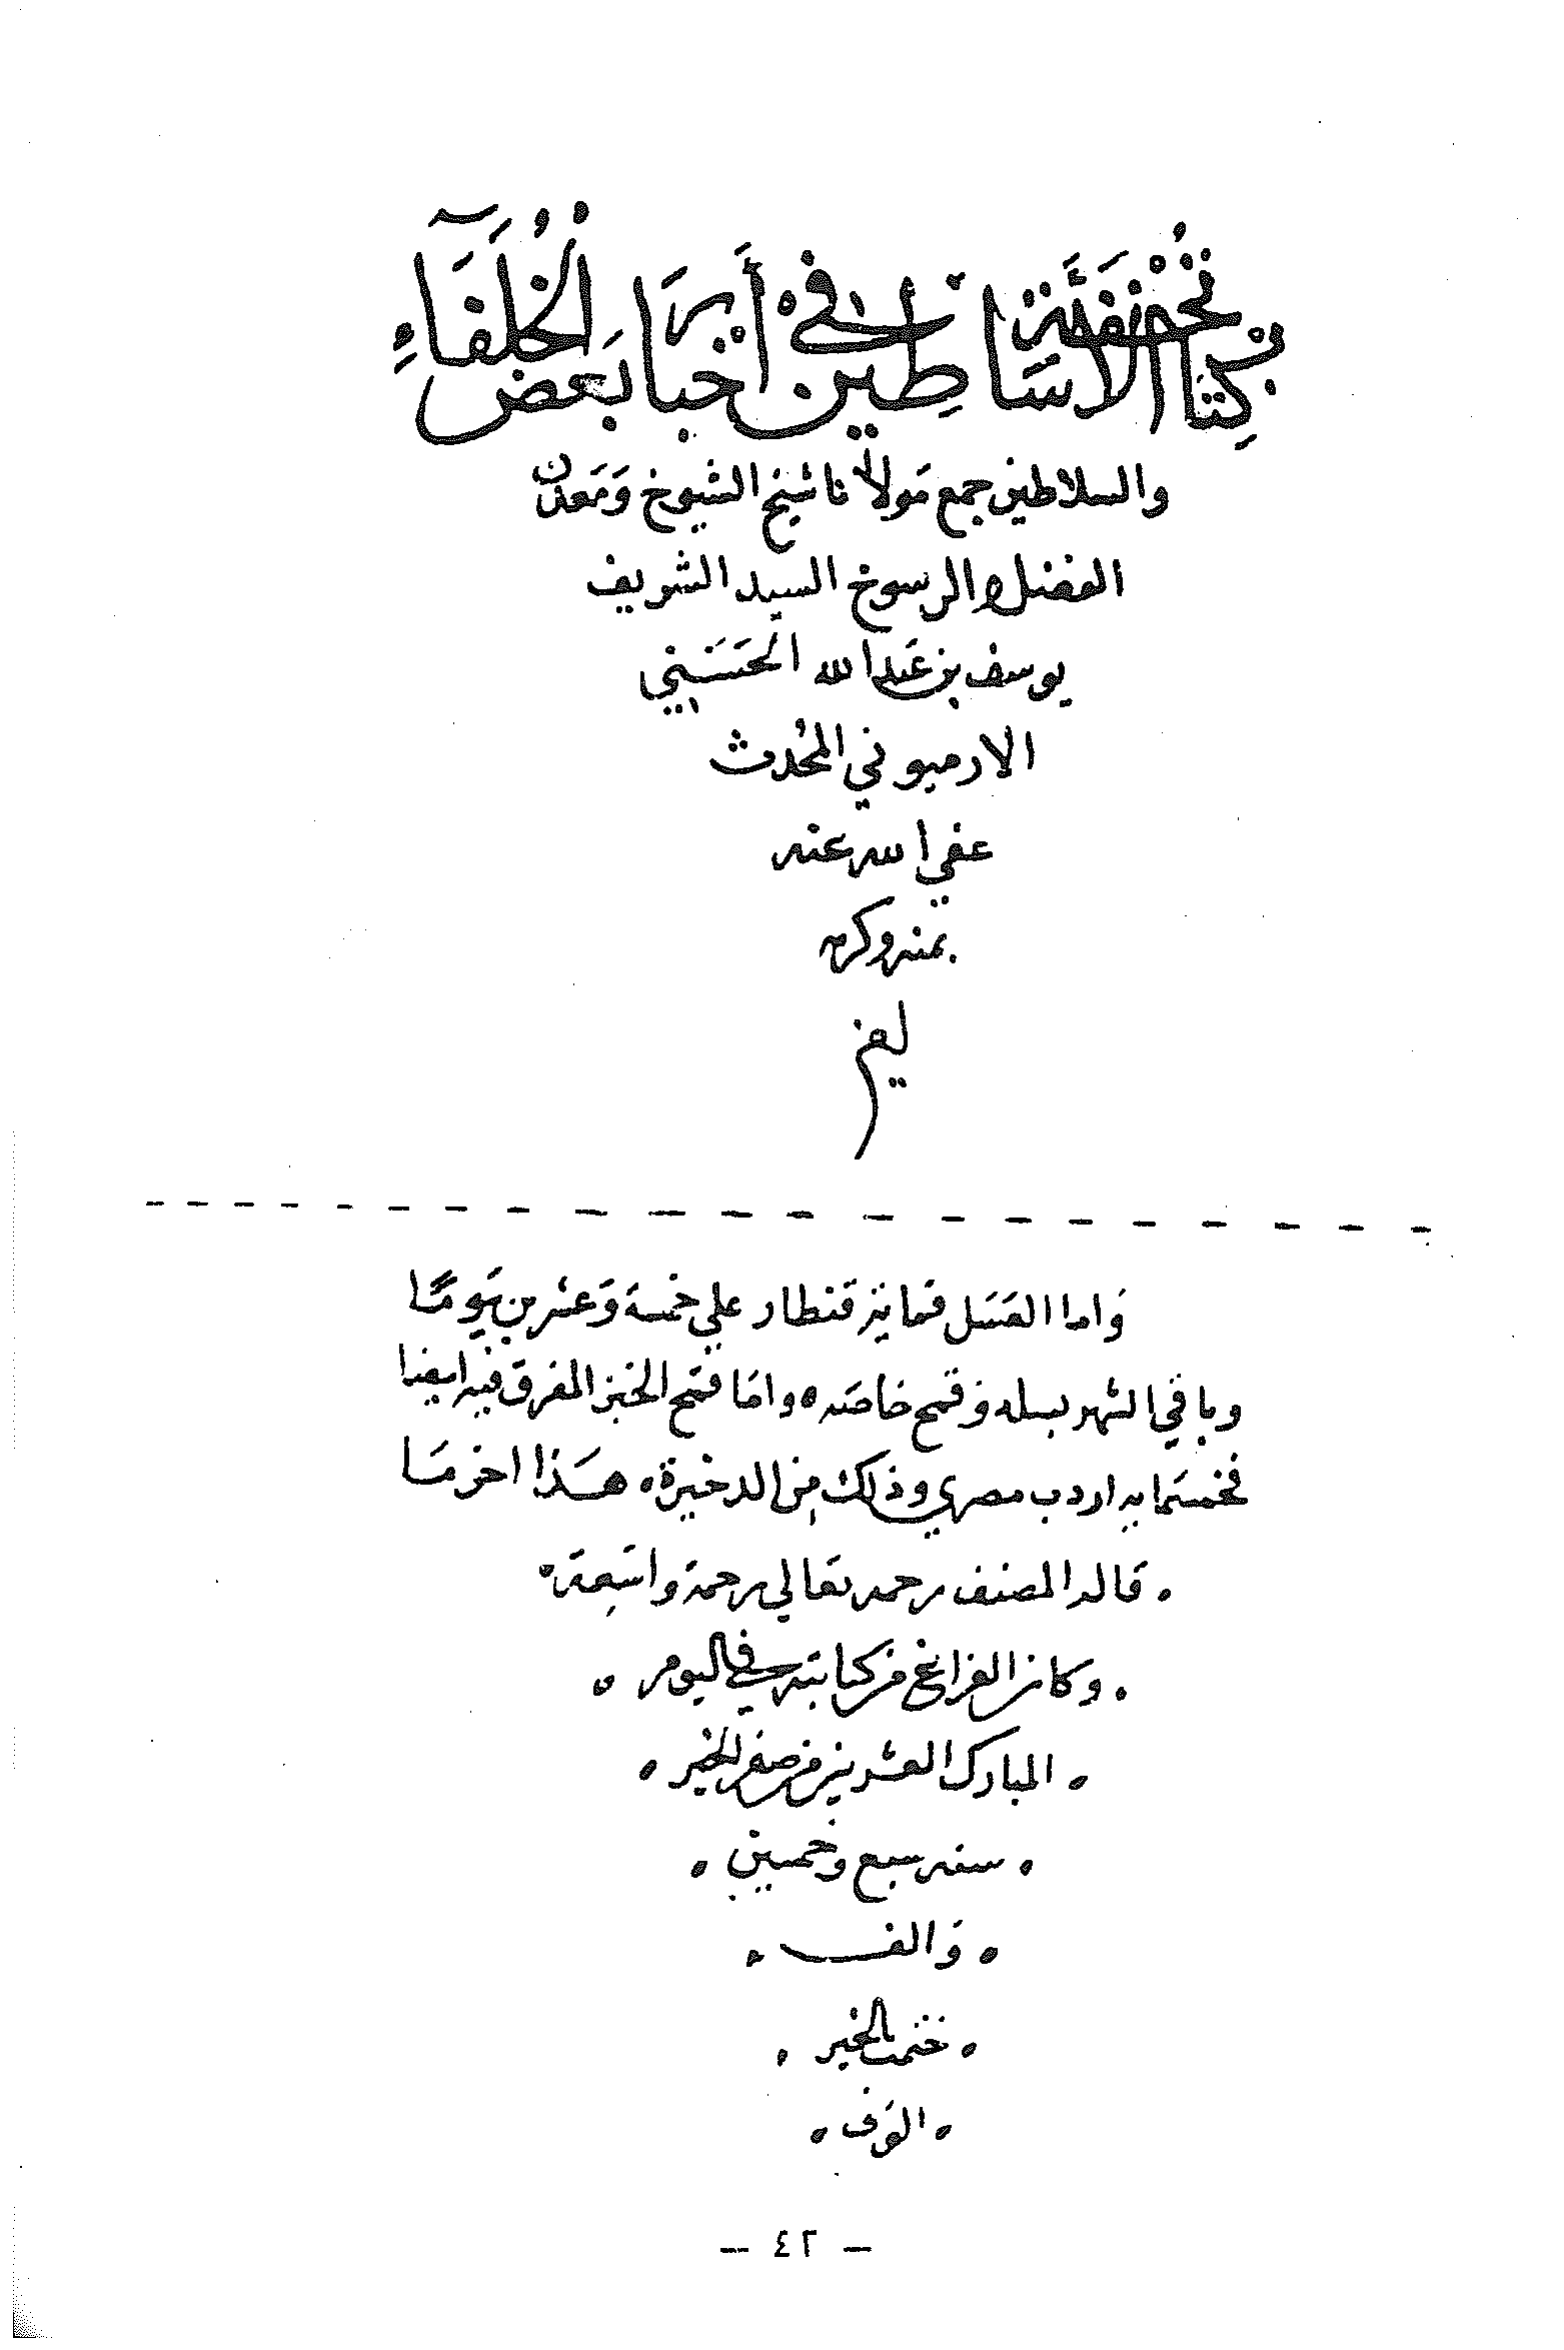 كِتَابُ تُحْفَةِ الأَسَاطِين فِي أَخْبَارِ بَعَض الخُلَفَآءِ
والسلاطين جمع مَولانا شيخ الشيوخ وَمَعدن
الفضل والرسوخ السيد الشريف
يوسف بن عَبد الله الحَسَنيني
الارميوني المحُدث
عفي الله عنه
بمنه وكرمه
وَاما العَسَل فثمانية قنطار علي خمسة وَعشرين يَومًا
وباقي الشهر بسله من قمح خاصَه ه واما قمح الخبز المفرق فيه ايضا
فخمسَمايه اردب مصري وذلك مِن الدخيرة ه هَذا اخر مَا
قاله المصنف رحمه تعالي رحمة واسِعة ه
وكان الفراغ من كتابته في اليوم ه
المبارك العشرين من صفر الخير ه
ه سنه سبع وخمسين ه
ه وَالف ه
ه ختمت بالخير ه
- ٤٢ -